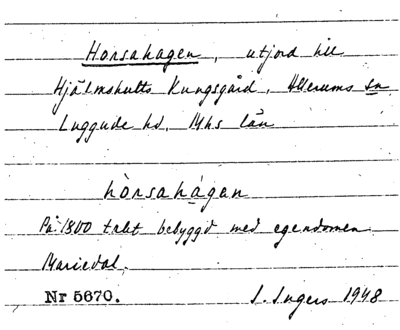 Horsahagen, utjord till
Hjälmshults Kungsgård, Allerums sn
Luggude hd, Mhs län
hòrsahágan
På 1800 talet bebyggd med egendomen
Mariedal.
Nr 5670. I. Ingers 1948